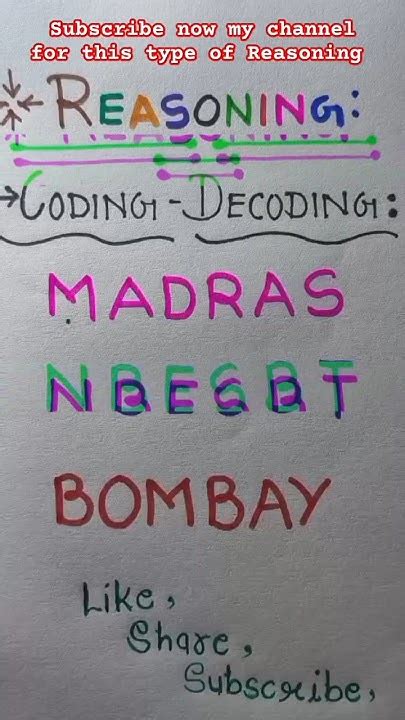 Subscribe now my channel
for this type of Reasoning
REASONING:
CODING-DECODING:
MADRAS
NBESBT
BOMBAY
Like,
Share,
Subscribe,